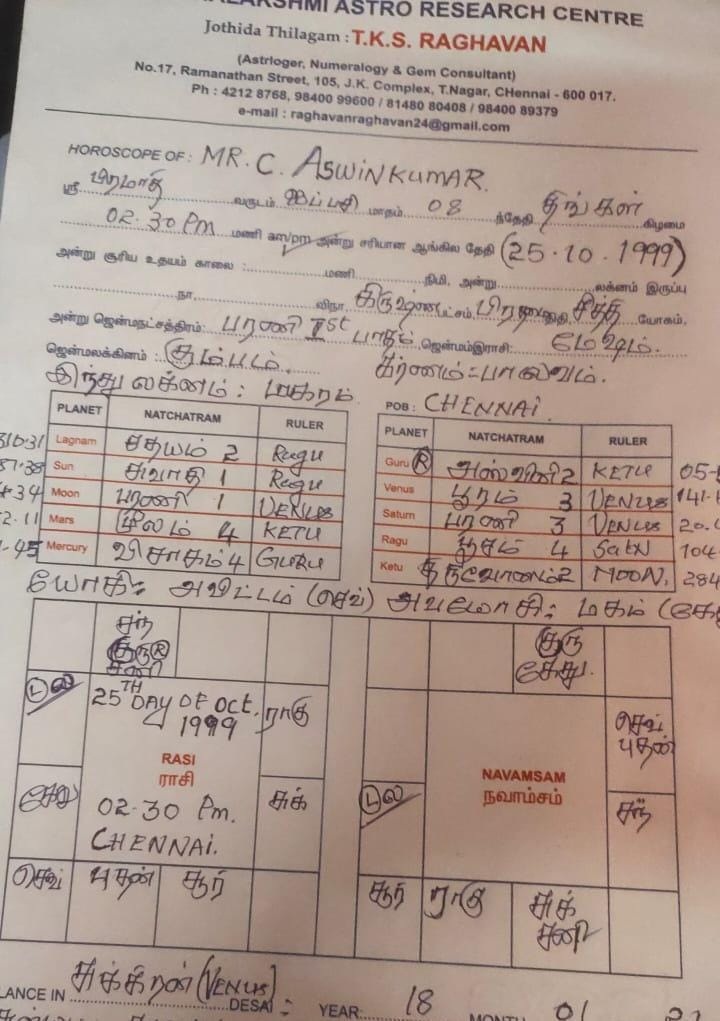 ASTRO RESEARCH CENTRE
Jothida Thilagam : T.K.S. RAGHAVAN
(Astrloger, Numeralogy & Gem Consultant)
No.17, Ramanathan Street, 105, J.K. Complex, T.Nagar, CHennai - 600 017.
Ph : 4212 8768, 98400 99600 / 81480 80408 / 98400 89379
e-mail : raghavanraghavan24@gmail.com
HOROSCOPE OF : MR. C. ASWINKUMAR.
ஸ்ரீ பிரமாதி வருடம் ஐப்பசி மாதம் 08 ந்தேதி திங்கள் கிழமை
02.30 Pm மணி am/pm அன்று சரியான ஆங்கில தேதி (25.10.1999)
அன்று சூரிய உதயம் காலை : மணி நிமி, அன்று லக்னம் இருப்பு
நா. விநா. கிருஷ்ண பட்சம், பிரதமை திதி, சித்தி யோகம்.
அன்று ஜென்மநட்சத்திரம்: பரணி Ist பாதம் ஜென்மம்இராசி: மேஷம்.
ஜென்மலக்கினம் : கும்பம். கரணம் = பாலவம்.
இந்து லக்னம் : மகரம்.
POB : CHENNAI
PLANET NATCHATRAM RULER
Lagnam சதயம் 2 Ragu
Sun சுவாதி 1 Ragu
Moon பரணி 1 VENUS
Mars மூலம் 4 KETU
Mercury விசாகம் 4 GURU
PLANET NATCHATRAM RULER
Guru (R) அஸ்வினி 2 KETU
Venus பூரம் 3 VENUS
Saturn பரணி 3 VENUS
Ragu பூசம் 4 Satn
Ketu திருவோணம் 2 MOON.
யோகி: அவிட்டம் (செவ்) அவயோகி: மகம்
சந்
குரு (R)
சனி
ல
25TH DAY OF OCT. 1999
ராகு
RASI
ராசி
கேது
02.30 Pm.
CHENNAI.
சுக்
செவ் புதன் சூர்
குரு
கேது.
செவ்
புதன்
NAVAMSAM
நவாம்சம்
ல
சந்
சூர் ராகு சுக்
சனி
LANCE IN சுக்கிரன் (VENUS) DESAI : YEAR: 18 MONTH 01